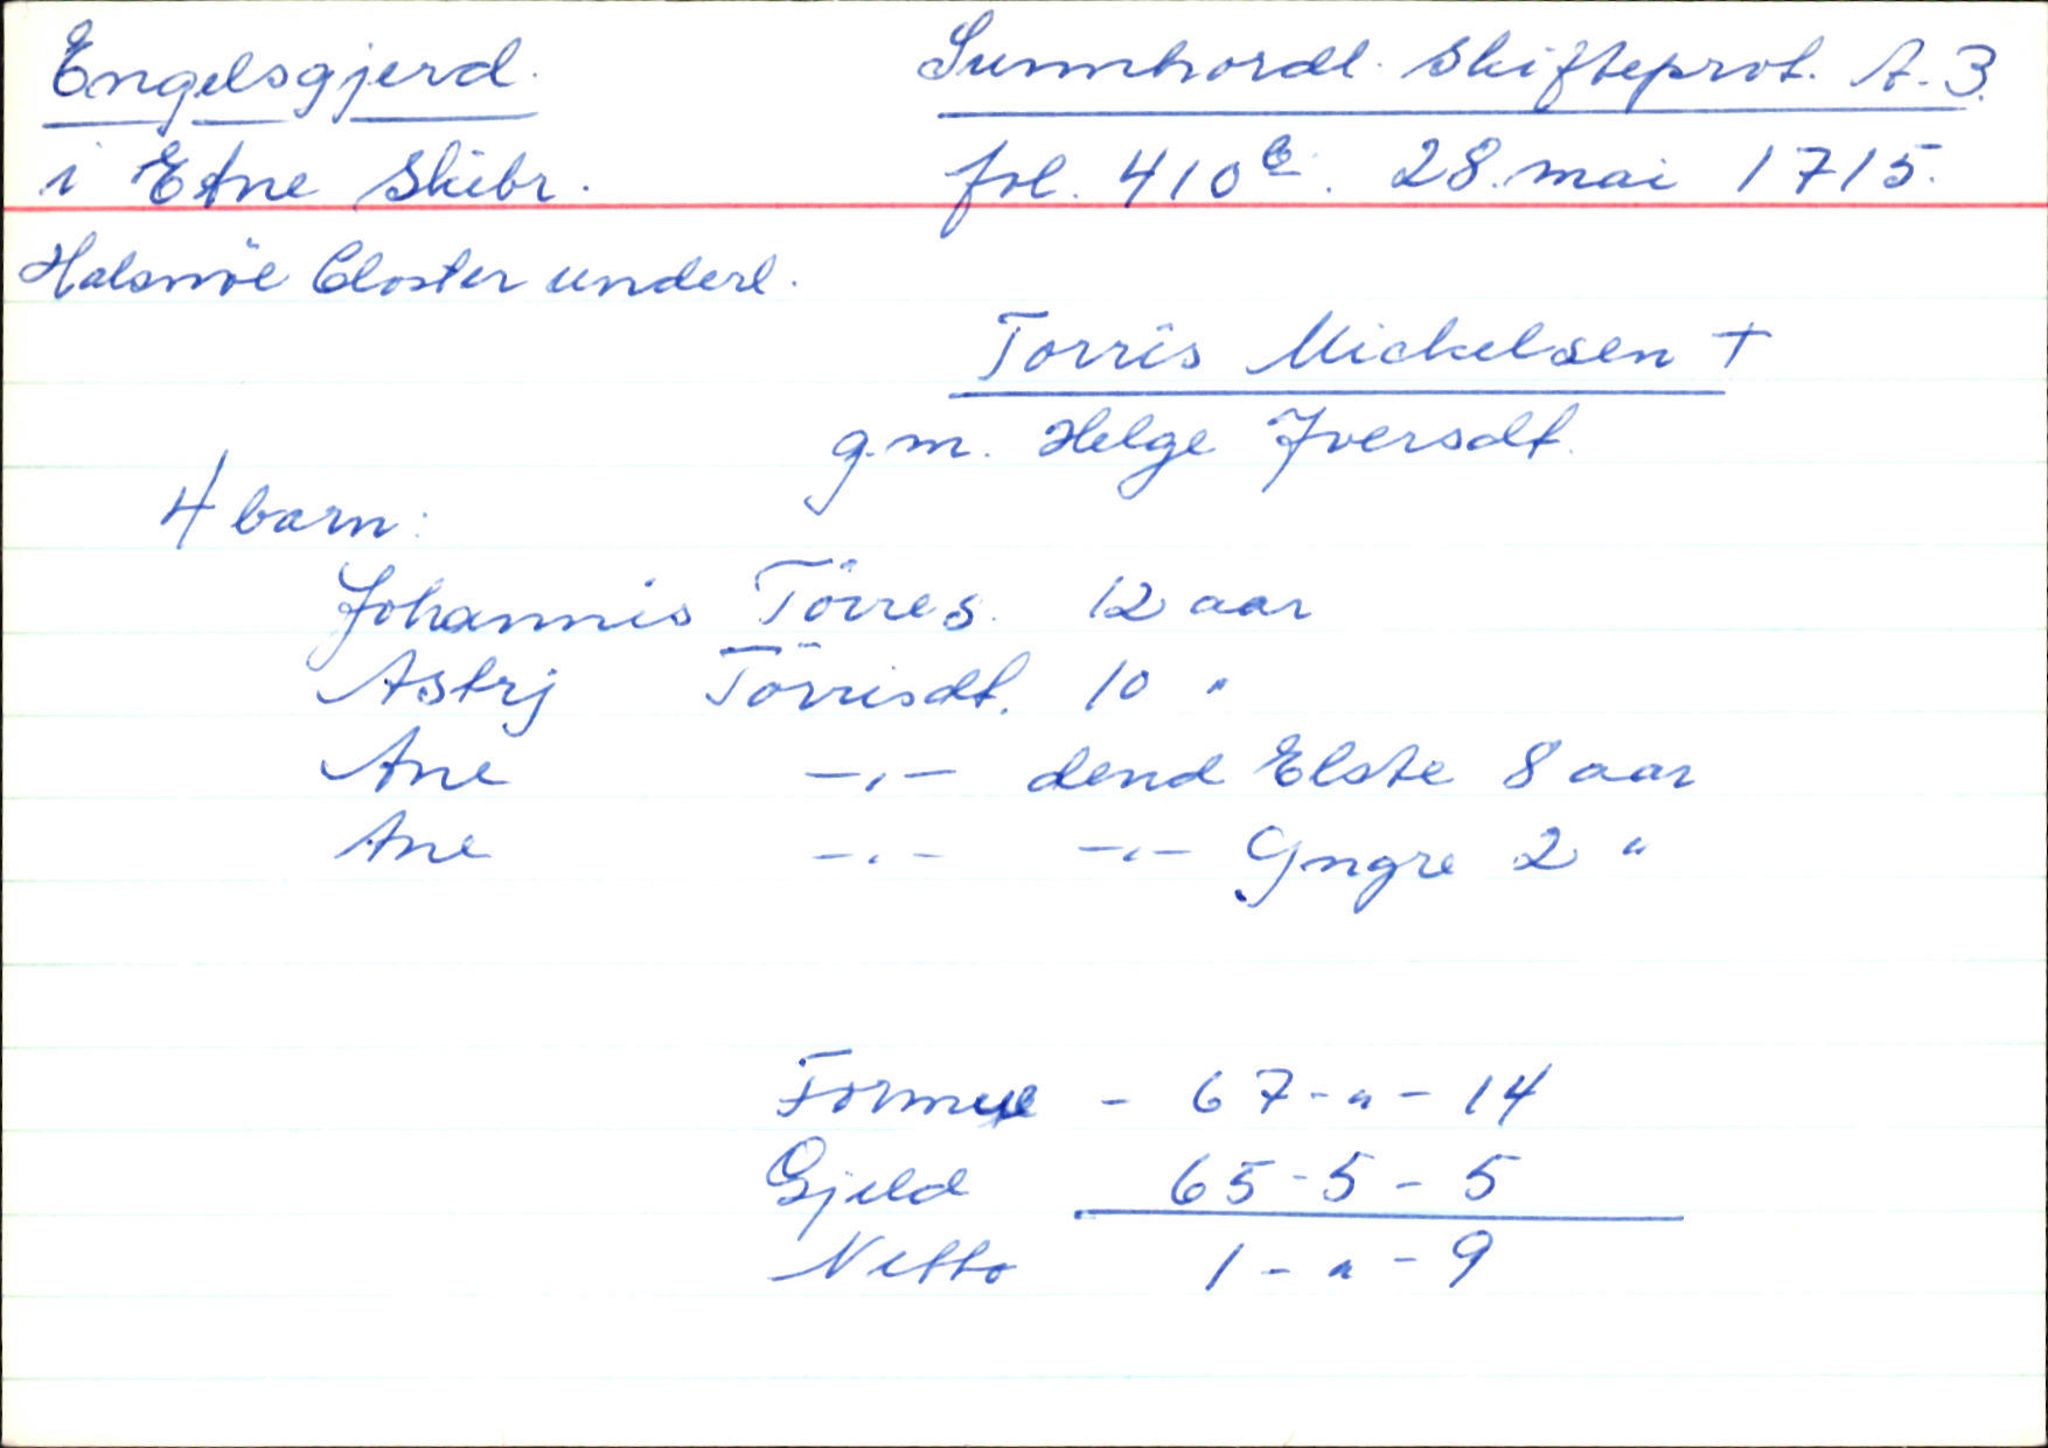 Engelsgjerd. Sunnhordl. Skifteprot. A.3.
i Etne Skibr. fol. 410b. 28. mai 1715.
Halsnöe Closter underl.
Torris Mickelsen +
g.m. Helge Iversdt.
4 barn:
Johannis Törres. 12 aar
Astrj Törrisdt. 10 "
Ane -,- dend Elste 8 aar
Ane -,- -,- Yngre 2 "
Formue - 67-"-14
Gjeld 65-5-5
Netto 1-"-9